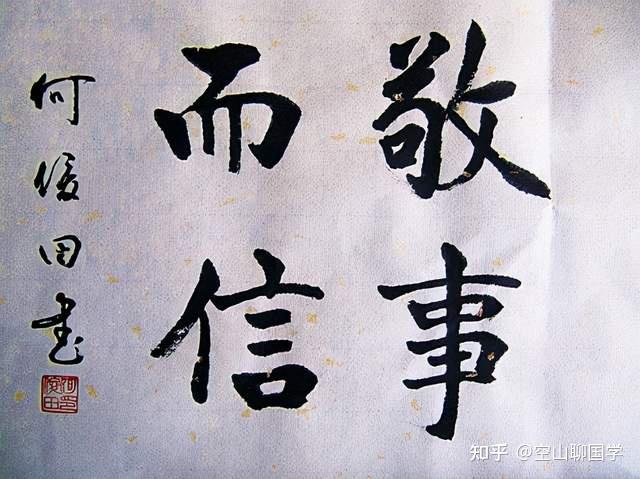 敬事
而信
何俊田书
知乎 @空山聊国学